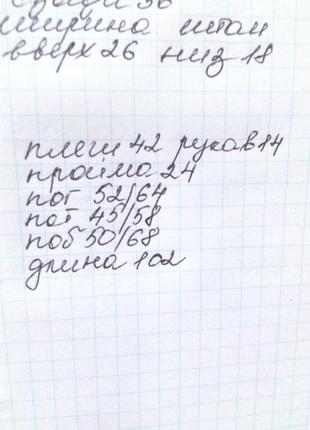 ширина штан
вверх 26 низ 18
плечи 42 рукав 14
пройма 24
пог 52/64
пот 45/58
поб 50/68
длина 102